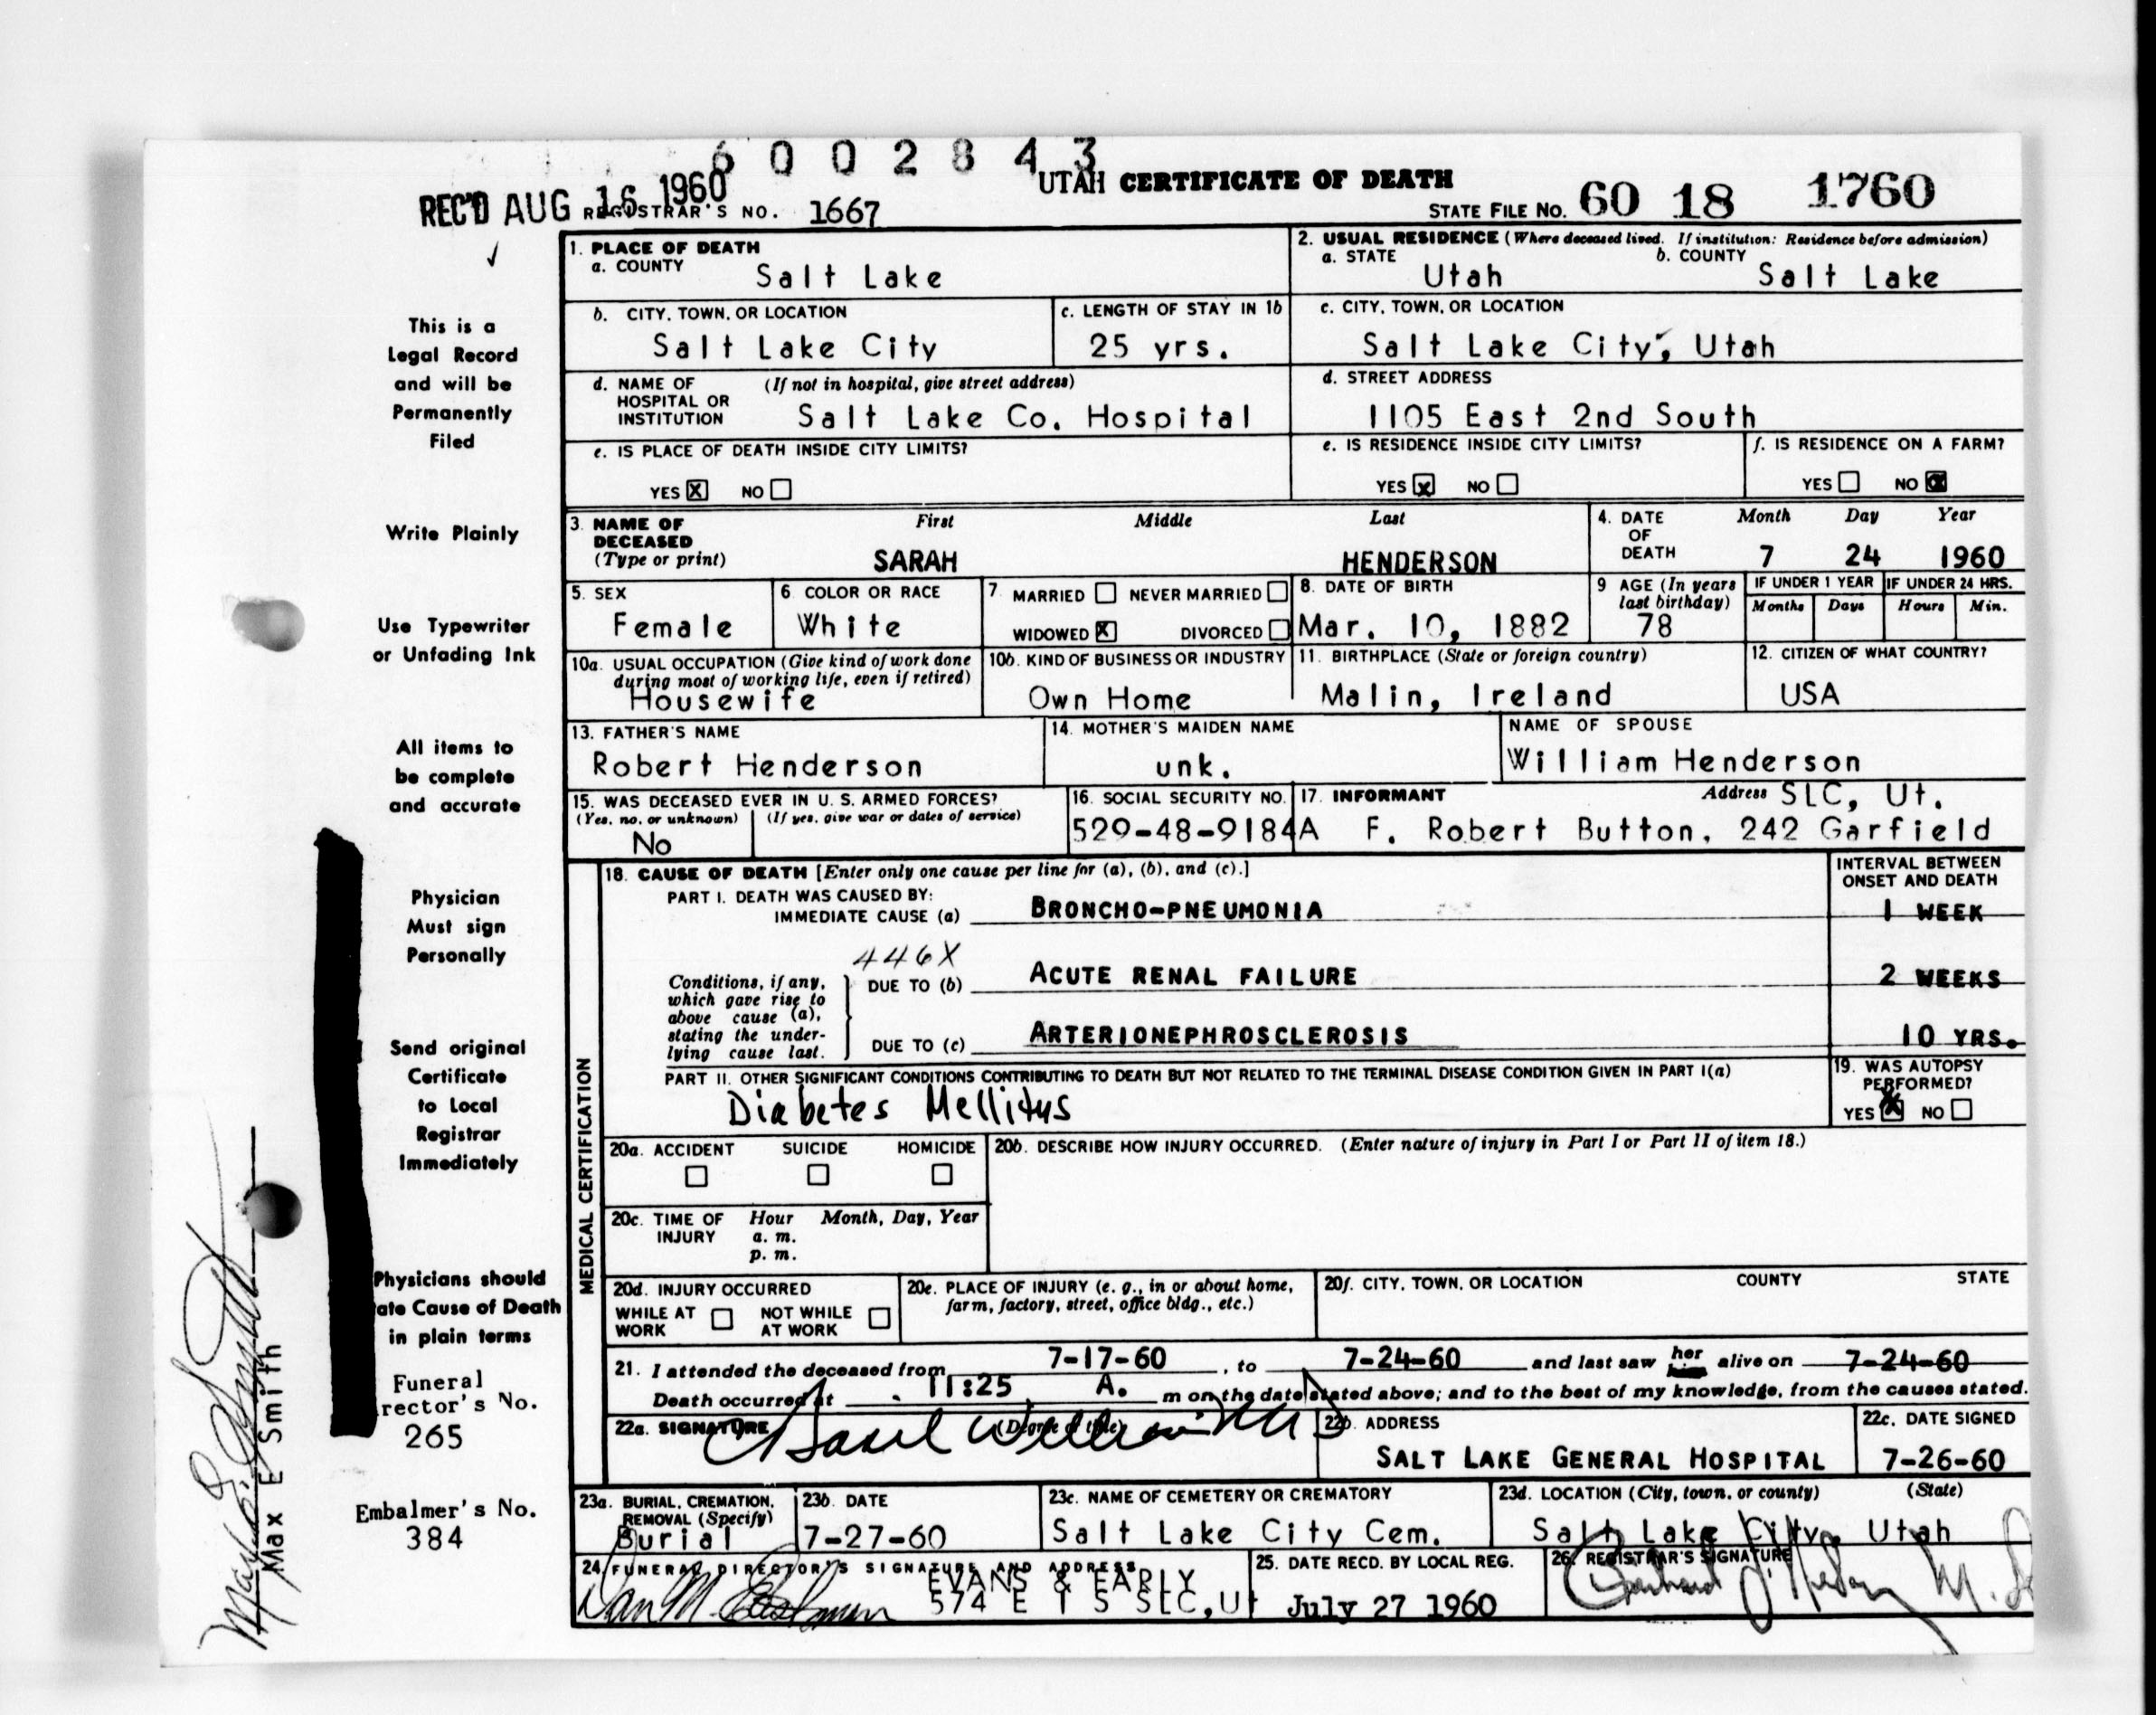 6 0 0 2 8 4 3
REC'D AUG 16 1960
REGISTRAR'S NO. 1667
UTAH CERTIFICATE OF DEATH
STATE FILE NO. 60 18 1760
1. PLACE OF DEATH
a. COUNTY Salt Lake
2. USUAL RESIDENCE (Where deceased lived. If institution: Residence before admission)
a. STATE Utah b. COUNTY Salt Lake
b. CITY, TOWN, OR LOCATION
Salt Lake City
c. LENGTH OF STAY IN 1b
25 yrs.
c. CITY, TOWN, OR LOCATION
Salt Lake City, Utah
d. NAME OF HOSPITAL OR INSTITUTION (If not in hospital, give street address)
Salt Lake Co. Hospital
d. STREET ADDRESS
1105 East 2nd South
e. IS PLACE OF DEATH INSIDE CITY LIMITS?
YES X NO
e. IS RESIDENCE INSIDE CITY LIMITS?
YES X NO
f. IS RESIDENCE ON A FARM?
YES NO X
3. NAME OF DECEASED (Type or print)
First Middle Last
SARAH HENDERSON
4. DATE OF DEATH
Month Day Year
7 24 1960
5. SEX
Female
6. COLOR OR RACE
White
7. MARRIED NEVER MARRIED
WIDOWED X DIVORCED
8. DATE OF BIRTH
Mar. 10, 1882
9 AGE (In years last birthday)
78
IF UNDER 1 YEAR
Months Days
IF UNDER 24 HRS.
Hours Min.
10a. USUAL OCCUPATION (Give kind of work done during most of working life, even if retired)
Housewife
10b. KIND OF BUSINESS OR INDUSTRY
Own Home
11. BIRTHPLACE (State or foreign country)
Malin, Ireland
12. CITIZEN OF WHAT COUNTRY?
USA
13. FATHER'S NAME
Robert Henderson
14. MOTHER'S MAIDEN NAME
unk.
NAME OF SPOUSE
William Henderson
15. WAS DECEASED EVER IN U. S. ARMED FORCES?
(Yes, no, or unknown) (If yes, give war or dates of service)
No
16. SOCIAL SECURITY NO.
529-48-9184A
17. INFORMANT Address SLC, Ut.
F. Robert Button, 242 Garfield
MEDICAL CERTIFICATION
18. CAUSE OF DEATH [Enter only one cause per line for (a), (b), and (c).]
INTERVAL BETWEEN ONSET AND DEATH
PART I. DEATH WAS CAUSED BY:
IMMEDIATE CAUSE (a) BRONCHO-PNEUMONIA 1 WEEK
446X
Conditions, if any, which gave rise to above cause (a), stating the underlying cause last.
DUE TO (b) ACUTE RENAL FAILURE 2 WEEKS
DUE TO (c) ARTERIONEPHROSCLEROSIS 10 YRS.
PART II. OTHER SIGNIFICANT CONDITIONS CONTRIBUTING TO DEATH BUT NOT RELATED TO THE TERMINAL DISEASE CONDITION GIVEN IN PART I(a)
Diabetes Mellitus
19. WAS AUTOPSY PERFORMED?
YES X NO
20a. ACCIDENT SUICIDE HOMICIDE
20b. DESCRIBE HOW INJURY OCCURRED. (Enter nature of injury in Part I or Part II of item 18.)
20c. TIME OF INJURY Hour Month, Day, Year
a. m.
p. m.
20d. INJURY OCCURRED
WHILE AT WORK NOT WHILE AT WORK
20e. PLACE OF INJURY (e. g., in or about home, farm, factory, street, office bldg., etc.)
20f. CITY, TOWN, OR LOCATION COUNTY STATE
21. I attended the deceased from 7-17-60, to 7-24-60 and last saw her him alive on 7-24-60
Death occurred at 11:25 A. m on the date stated above; and to the best of my knowledge, from the causes stated.
22a. SIGNATURE (Degree or title)
22b. ADDRESS
SALT LAKE GENERAL HOSPITAL
22c. DATE SIGNED
7-26-60
23a. BURIAL, CREMATION, REMOVAL (Specify)
Burial
23b. DATE
7-27-60
23c. NAME OF CEMETERY OR CREMATORY
Salt Lake City Cem.
23d. LOCATION (City, town, or county) (State)
Salt Lake City, Utah
24. FUNERAL DIRECTOR'S SIGNATURE AND ADDRESS
EVANS & EARLY
574 E 1 S SLC, Ut
25. DATE RECD. BY LOCAL REG.
July 27 1960
26. REGISTRAR'S SIGNATURE
This is a
Legal Record
and will be
Permanently
Filed
Write Plainly
Use Typewriter
or Unfading Ink
All items to
be complete
and accurate
Physician
Must sign
Personally
Send original
Certificate
to Local
Registrar
Immediately
Physicians should
ate Cause of Death
in plain terms
Funeral
rector's No.
265
Embalmer's No.
384
Max E. Smith
Max E Smith